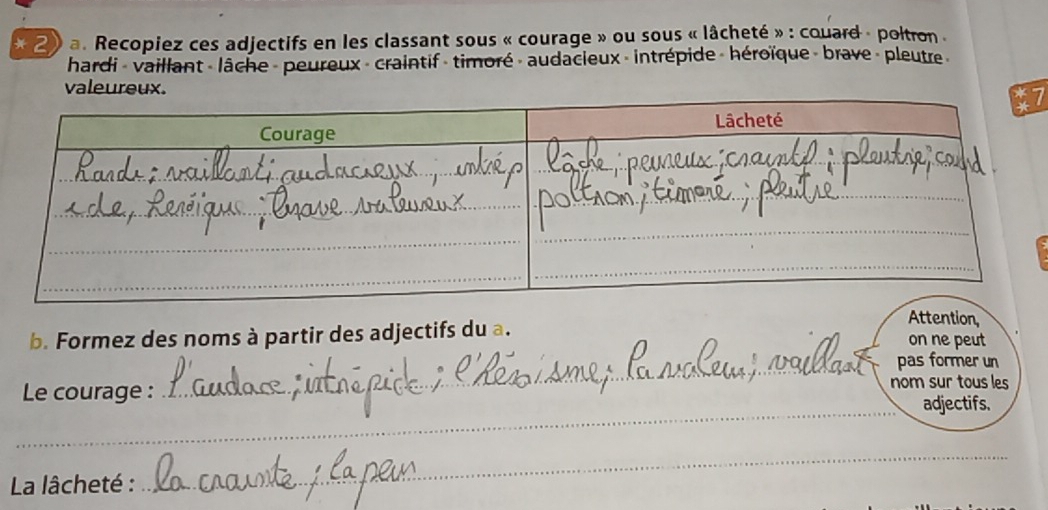 * 2 a. Recopiez ces adjectifs en les classant sous « courage » ou sous « lâcheté » : couard · poltron ·
hardi · vaillant · lâche · peureux · craintif · timoré · audacieux · intrépide · héroïque · brave · pleutre ·
valeureux.
** 7
Courage
Lâcheté
Hardi ; vaillant ; audacieux ; intrép
ide, héroïque ; brave valeureux
lâche ; peureux ; craintif ; pleutre ; couard
poltron ; timoré ; pleutre
b. Formez des noms à partir des adjectifs du a.
Attention,
on ne peut
pas former un
nom sur tous les
adjectifs.
Le courage : l'audace ; intrépide ; l'héroïsme ; la valeur ; vaillant
La lâcheté : la crainte ; la peur